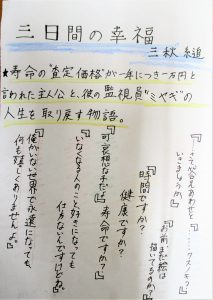 三日間の幸福
三秋 縋
★寿命の"査定価格"が一年につき一万円と
言われた主人公と、彼の監視員"ミヤギ"の
人生を取り戻す物語。
『お前まだ絵は
描いてるのか?』
『時間ですか?
健康ですか?
寿命ですか?』
『可哀想な人だ。』
『いなくなる人のこと、好きになっても
仕方ないんですけどね。』
『俺がいない世界で永遠になっても、
何も嬉しくありませんよ。』